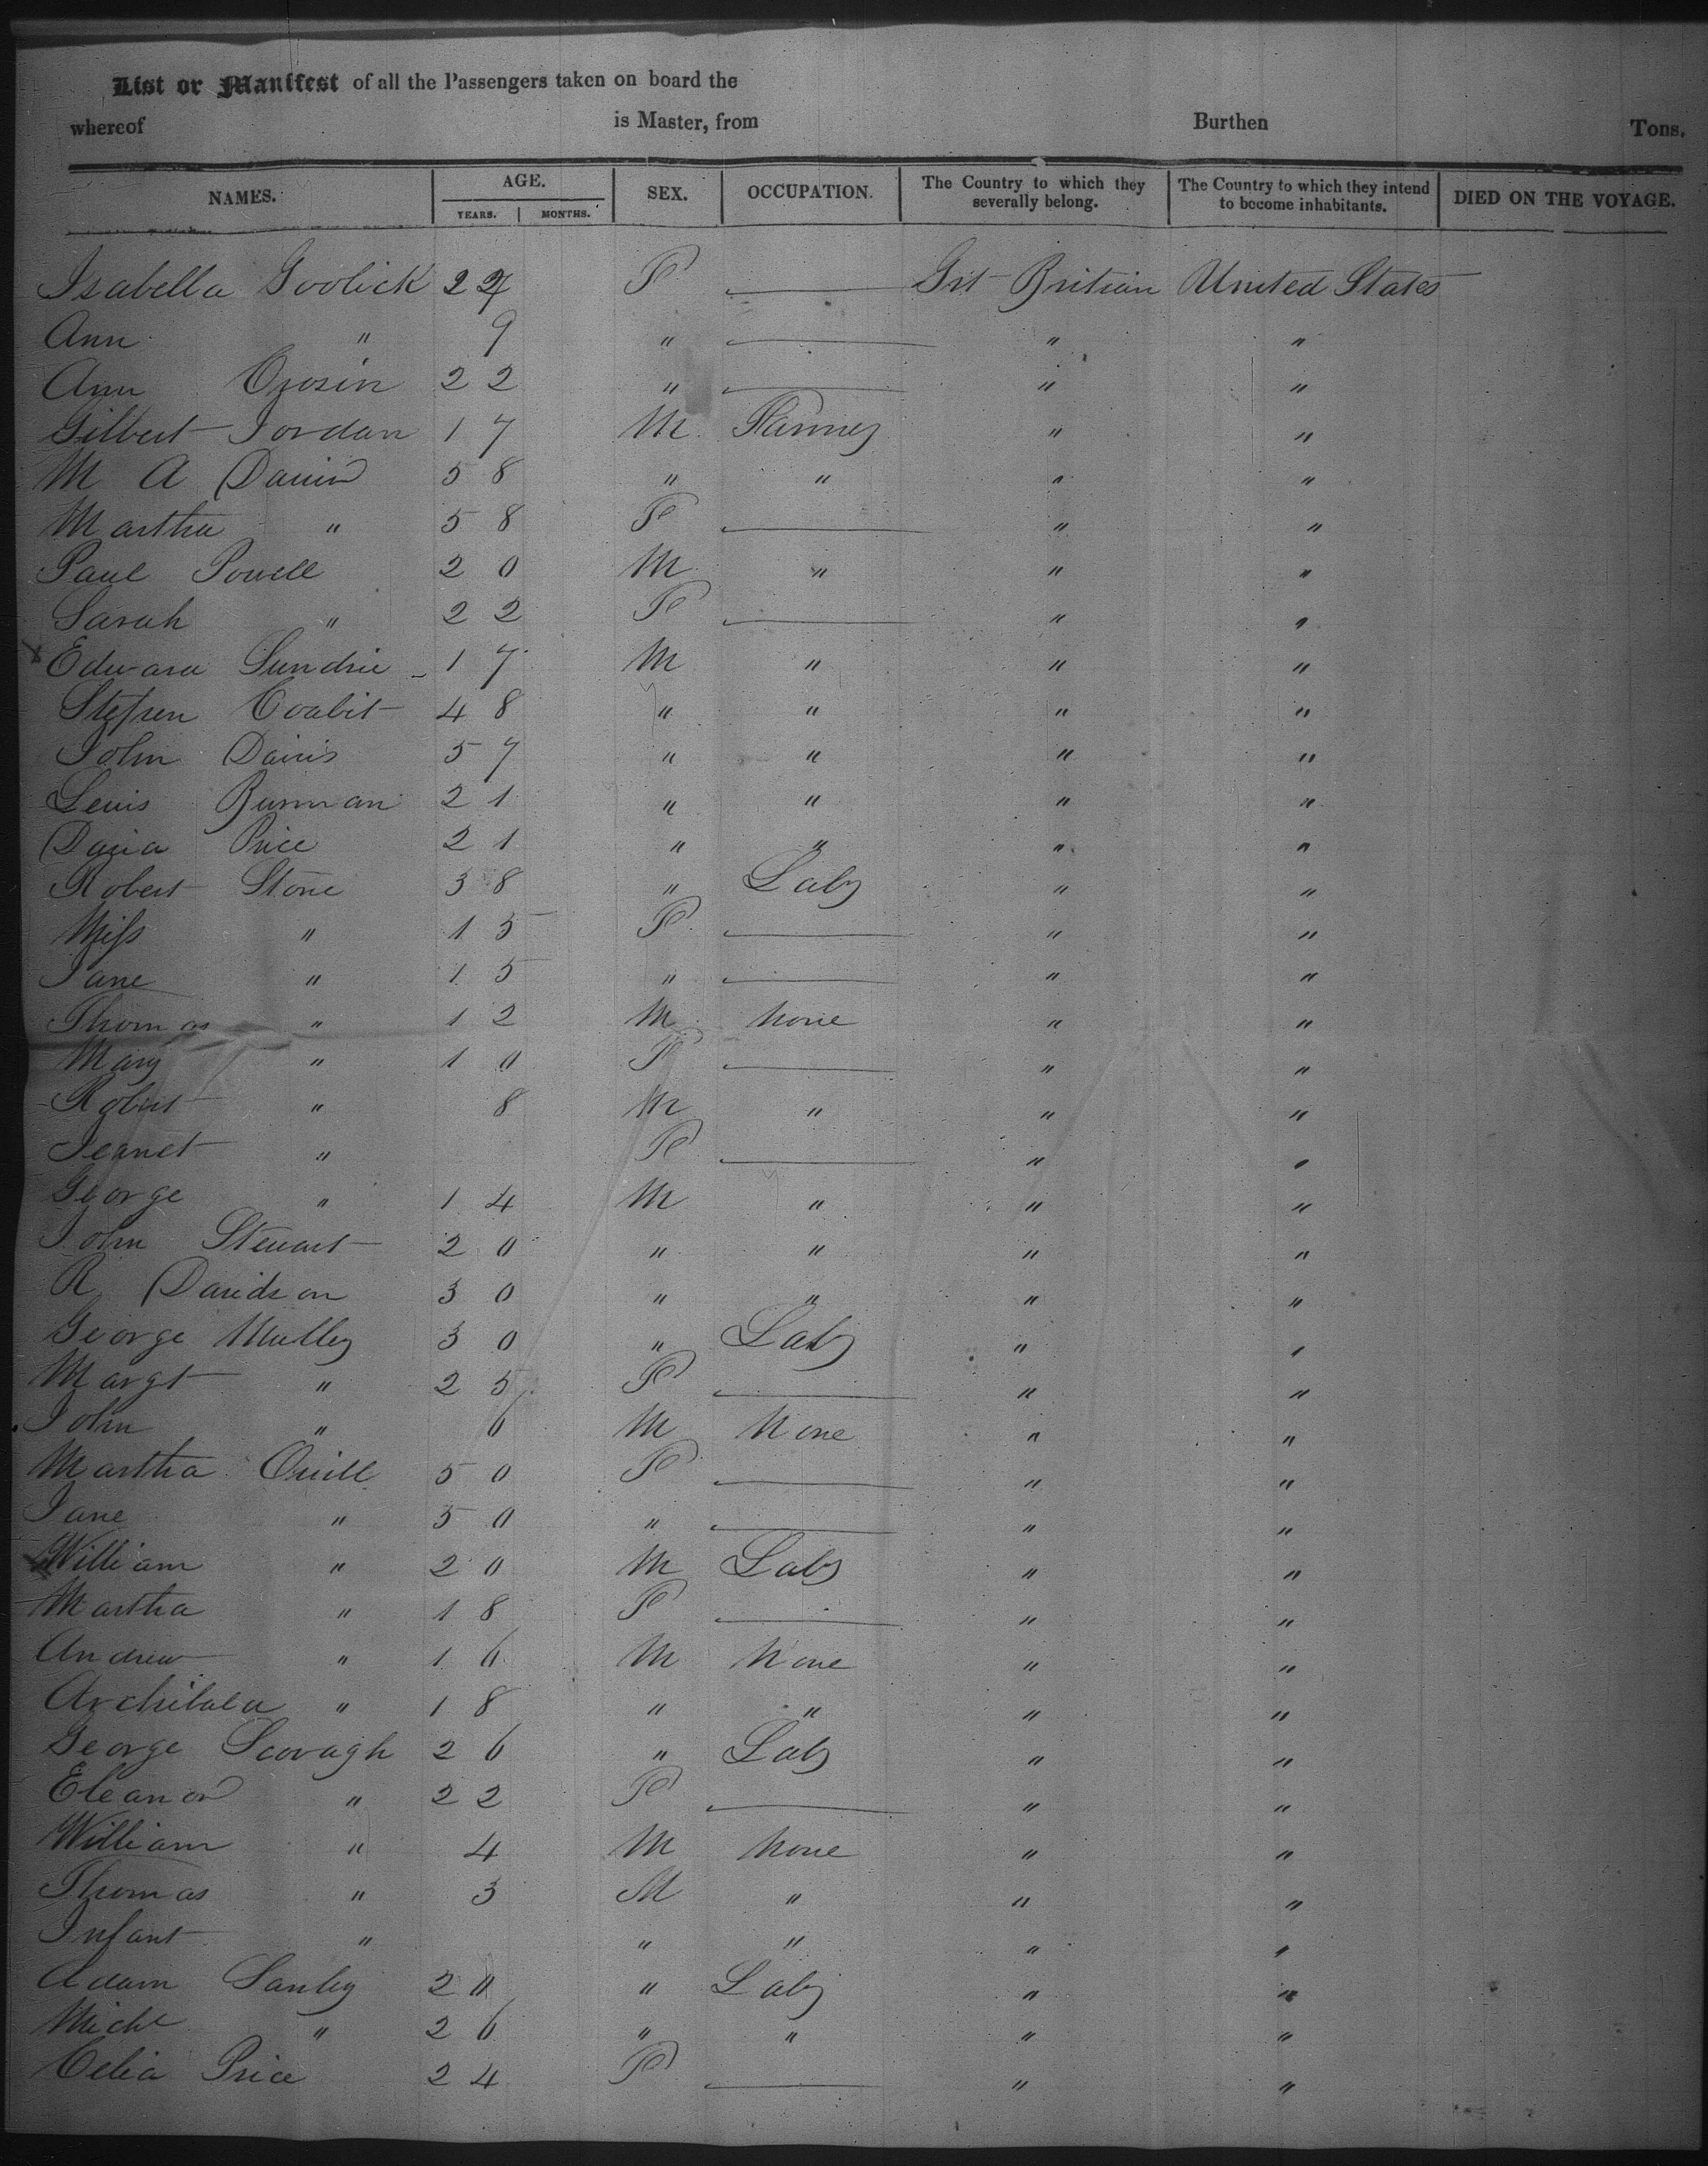 List or Manifest of all the Passengers taken on board the
whereof is Master, from Burthen Tons.
NAMES. AGE. YEARS. MONTHS. SEX. OCCUPATION. The Country to which they severally belong. The Country to which they intend to become inhabitants. DIED ON THE VOYAGE.
Isabella Goolick 22 F — Grt Britian United States
Ann " 9 " — " "
Ann Crosin 22 " — " "
Gilbert Jordan 17 M Farmer " "
M A David 58 " " " "
Martha " 58 F — " "
Paul Powell 20 M " " "
Sarah " 22 F — " "
Edward Sundrie 17 M " " "
Stephen Coabit 48 " " " "
John Davis 57 " " " "
Lewis Burman 21 " " " "
David Price 21 " " " "
Robert Stone 38 " Labr " "
Miss " 15 F — " "
Jane " 15 " — " "
Thomas " 12 M None " "
Mary " 10 F — " "
Robert " 8 M " " "
Jeanet " F — " "
George " 14 M " " "
John Stewart 20 " " " "
R Davidson 30 " " " "
George Mulley 30 " Labr " "
Margt " 25 F — " "
John " 6 M None " "
Martha Quill 50 F — " "
Jane " 50 " — " "
William " 20 M Labr " "
Martha " 18 F — " "
Andrew " 16 M None " "
Archibald " 18 " " " "
George Scovagh 26 " Labr " "
Eleanor " 22 F — " "
William " 4 M None " "
Thomas " 3 M " " "
Infant " " " " "
Adam Sanley 20 " Labr " "
Michl " 26 " " " "
Celia Price 24 F — " "